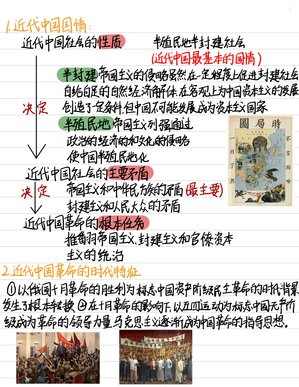 1.近代中国国情:
近代中国社会的性质 半殖民地半封建社会
(近代中国最基本的国情)
半封建:帝国主义的侵略虽然在一定程度上促进封建社会
自给自足的自然经济解体,在客观上为中国资本主义的发展
创造了一定条件,但中国不可能发展成为资本主义国家
决定
半殖民地:帝国主义列强通过
政治的经济的和文化的侵略
使中国半殖民地化
時局圖
近代中国社会的主要矛盾
决定 帝国主义和中华民族的矛盾(最主要)
封建主义和人民大众的矛盾
近代中国革命的根本任务
推翻帝国主义、封建主义和官僚资本
主义的统治
2.近代中国革命的时代特征
①以俄国十月革命的胜利为标志,中国资产阶级民主革命的时代背景
发生了根本转换 ②在十月革命的影响下,以五四运动为标志,中国无产阶
级成为革命的领导力量,马克思主义逐渐成为中国革命的指导思想。